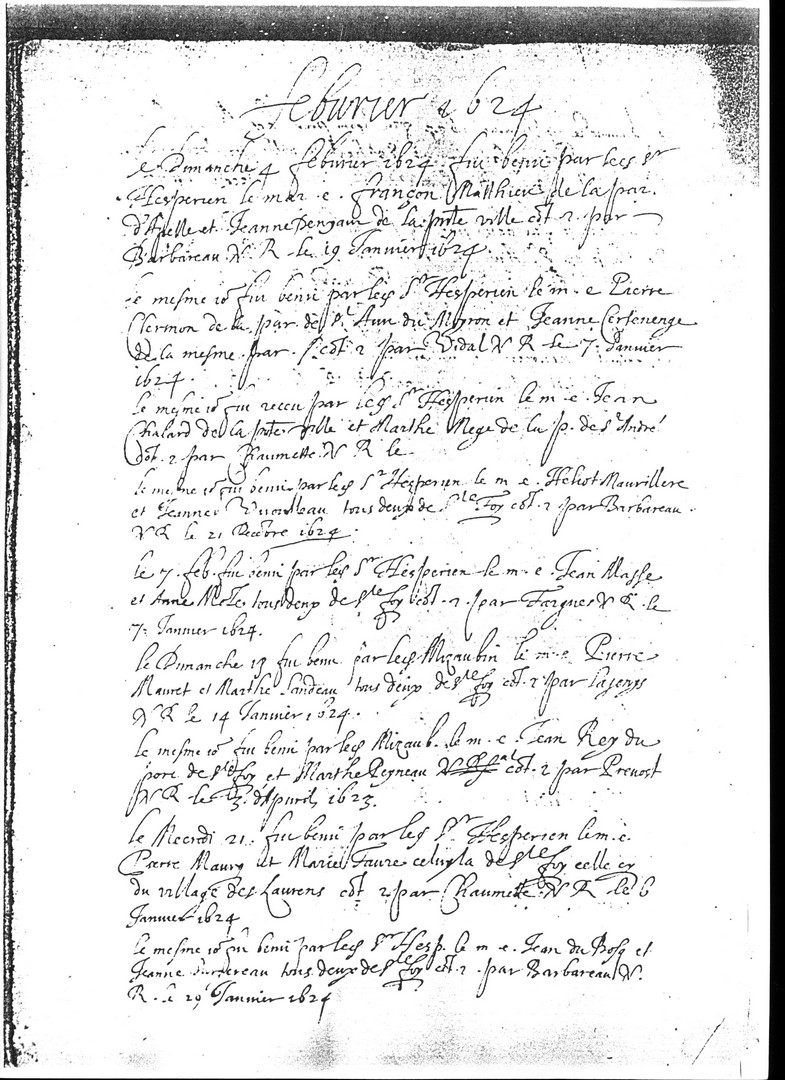 febvrier 1624
le Dimanche 4 febvrier 1624 fut beni par le s Sr
Hesperien le mar. e. françon Matthieu de la par.
d' et Jeanne de la pnte ville cōt. 2. par
Barbareau N R le 19 Janvier 1624
le mesme io fut beni par le s Sr Hesperien le m. e Pierre
Clermon de la par de St Aun du Moron et Jeanne
de la mesme par. cōt. 2 par Vidal N R le 7. Janvier
1624.
le mesme io fut receu par le s Sr Hesperien le m. e. Jean
Chalard de la pnte ville et Marthe Mege de la p. de St André
cōt. 2 par Chaumette N R le
le mesme io fut beni par le s Sr Hesperien le m e. Heliot Maurillere
et Jeanne tous deux de Ste Foy cōt. 2 par Barbareau.
N R le 21 1624
le 7. feb. fut beni par le s Sr Hesperien le m. e. Jean Masse
et Anne tous deux de Ste foy cōt. 2. par Fargues N R. le
7. Janvier 1624.
le Dimanche fut beni par le s Mizaubin le m. e Pierre
Mauret et Marthe Landeau tous deux de Ste foy cōt. 2 par
N R le 14 Janvier 1624.
le mesme io fut beni par le s Mizaub. le m. e. Jean Rey du
port de Ste foy et Marthe Peyneau cōt. 2 par Prevost
N R le 3. d'Apvril 1623.
le Mecrdi 21. fut beni par le s Sr Hesperien le m. e.
Pierre Maury et Marie Faure celuyla de Ste foy celle cy
du village des Laurens cōt 2 par Chaumette N R le 6
Janvier 1624
le mesme io fut beni par le s Sr Hesp. le m e. Jean du Bosq et
Jeanne tous deux de Ste foy cōt. 2. par Barbareau N.
R. le 29 Janvier 1624